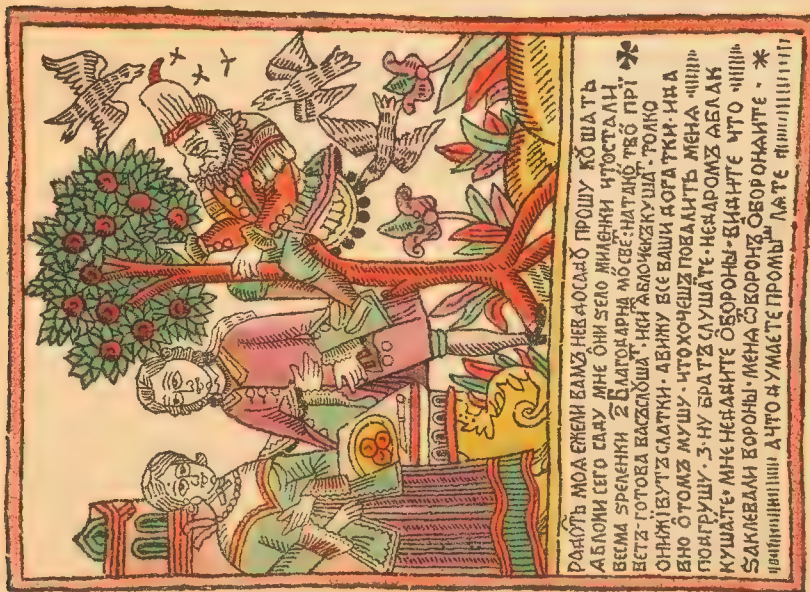 РАДОТЬ МОА ЕЖЕЛИ ВАМЪ НЕВ ДОСАДȢ ПРОШУ КȢШАТЬ
АБЛОМИ СЕГО САДУ МНЕ ѺНИ ЅЕЛО МИЛЕНКИ ИТОСТАЛИ
ВЕСМА ЅРЕЛЕНКИ 2 БЛАГОДАРНА МОСВЕ НАТАКО ТВО ПРІ
ВЕТЪ ГОТОВА ВАСЪ СЛȢШАТ ИСИ АБЛОЧЕКЪ КУШАТ ТОЛКО
ОНИЖ БУТЪ СЛАТКИ АВИЖУ ВСЕ ВАШИ ДОГАТКИ ИВА
ВНО ѺТОМЪ МУШУ ЧТОХОЧЕШЪ ПОВАЛИТЬ МЕНА
ПОДГРУШУ 3 НУ БРАТЪ СЛУШАТЕ НЕДАРОМЪ АБЛАК
КУШАТЕ МНЕ НЕДАИТЕ ѺБОРОНЫ ВИДИТЕ ЧТО
ЅАКЛЕВАЛИ ВОРОНЫ МЕНА ѾВОРОНЪ ѺБОРОНАИТЕ
АЧТО ДУМАЕТЕ ПРОМЫ ЛАТЕ